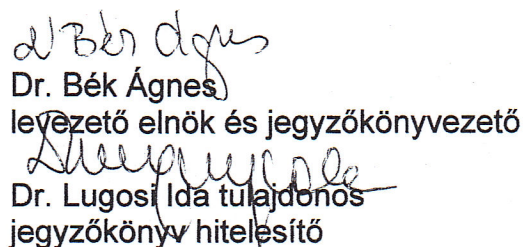 Dr. Bék Ágnes
levezető elnök és jegyzőkönyvezető
Dr. Lugosi Ida tulajdonos
jegyzőkönyv hitelesítő